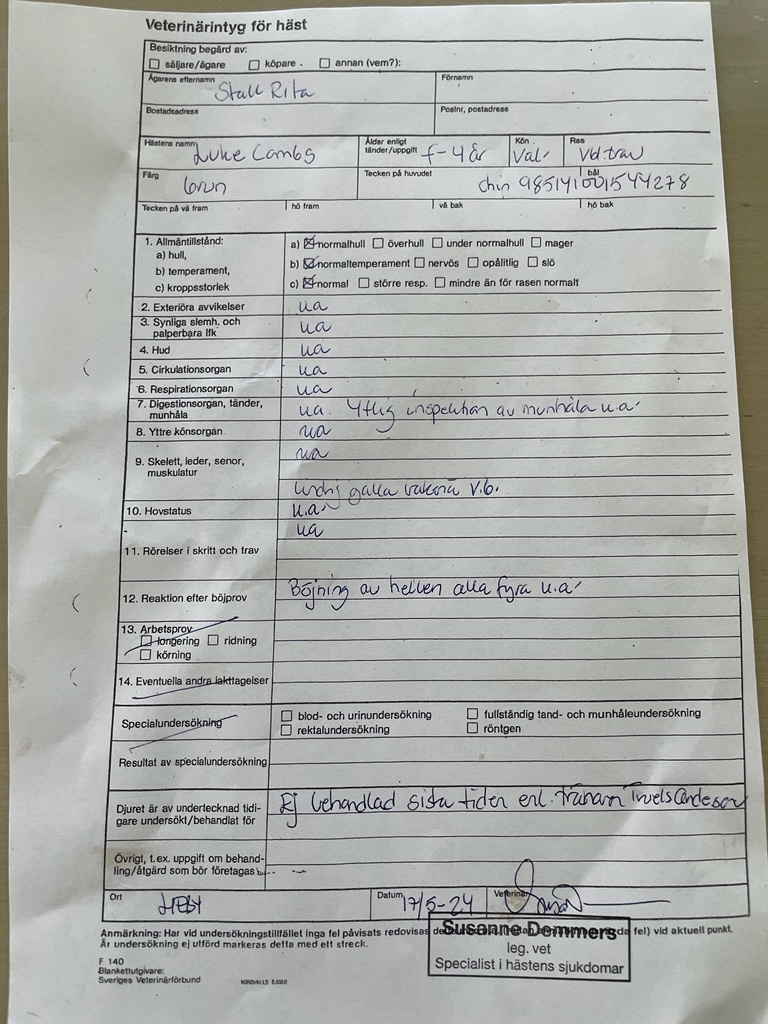 Veterinärintyg för häst
Besiktning begärd av:
☐ säljare/ägare ☐ köpare ☐ annan (vem?):
Ägarens efternamn Förnamn
Stall Rita
Bostadsadress Postnr, postadress
Hästens namn Ålder enligt tänder/uppgift Kön Ras
Luke Combs f-4 år Val. Vbl.trav
Färg Tecken på huvudet bål
brun chip 985141001544278
Tecken på vä fram hö fram vä bak hö bak
1. Allmäntillstånd:
a) hull, a) ☒ normalhull ☐ överhull ☐ under normalhull ☐ mager
b) temperament, b) ☒ normaltemperament ☐ nervös ☐ opålitlig ☐ slö
c) kroppsstorlek c) ☒ normal ☐ större resp. ☐ mindre än för rasen normalt
2. Exteriöra avvikelser ua
3. Synliga slemh. och palperbara lfk ua
4. Hud ua
5. Cirkulationsorgan ua
6. Respirationsorgan ua
7. Digestionsorgan, tänder, munhåla ua. Ytlig inspektion av munhåla u.a
8. Yttre könsorgan ua
9. Skelett, leder, senor, muskulatur ua
galla v.b.
10. Hovstatus u.a
11. Rörelser i skritt och trav ua
12. Reaktion efter böjprov Böjning av hel ben alla fyra u.a
13. Arbetsprov
☐ longering ☐ ridning
☐ körning
14. Eventuella andra iakttagelser
Specialundersökning ☐ blod- och urinundersökning ☐ fullständig tand- och munhåleundersökning
☐ rektalundersökning ☐ röntgen
Resultat av specialundersökning
Djuret är av undertecknad tidigare undersökt/behandlat för Ej behandlad sista tiden enl. Truels
Övrigt, t.ex. uppgift om behandling/åtgärd som bör företagas
Ort Datum Veterinär
HEBY 17/5-24
Anmärkning: Har vid undersökningstillfället inga fel påvisats redovisas fel) vid aktuell punkt.
Är undersökning ej utförd markeras detta med ett streck.
Susanne Demmers
leg. vet
Specialist i hästens sjukdomar
F 140
Blankettutgivare:
Sveriges Veterinärförbund